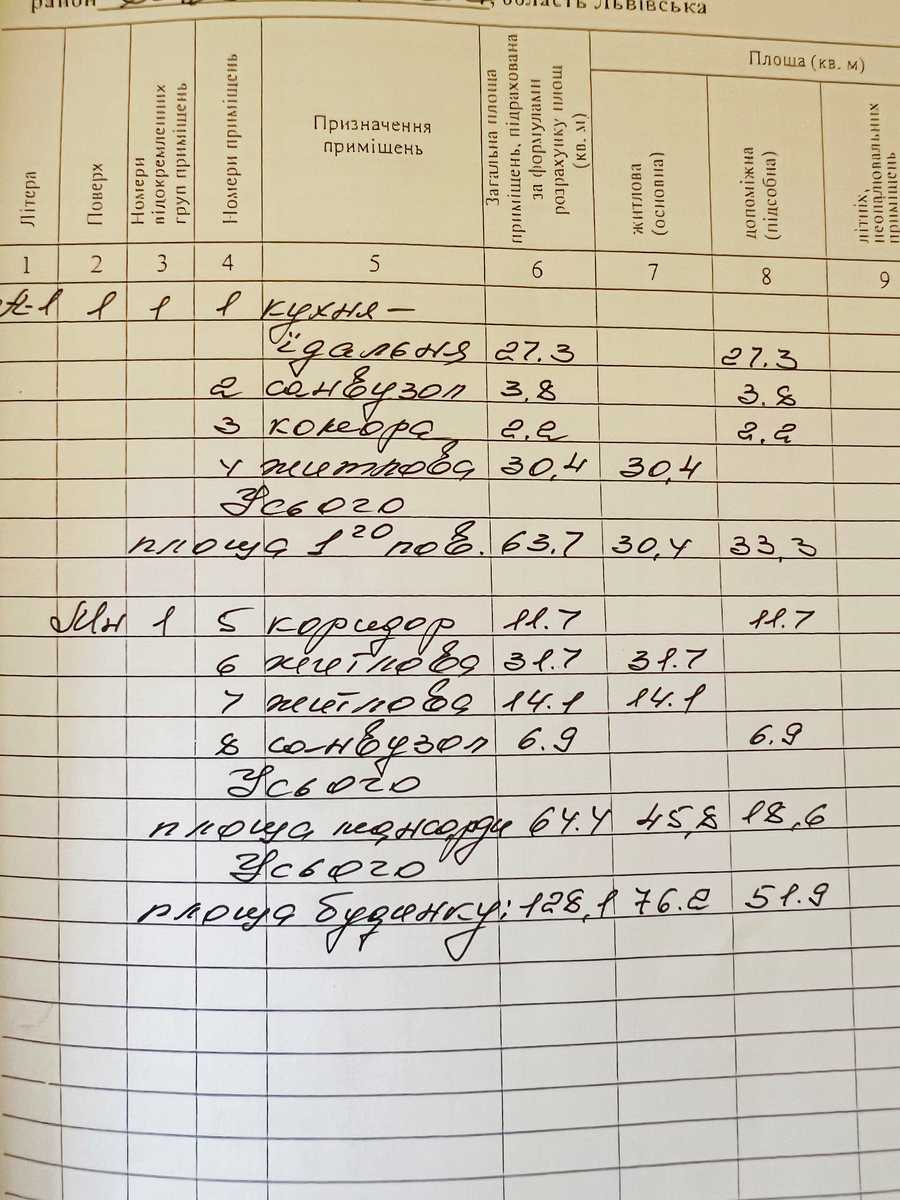 район область Львівська
Літера
Поверх
Номери відокремлених груп приміщень
Номери приміщень
Призначення приміщень
Загальна площа приміщень, підрахована за формулами розрахунку площ (кв. м)
Площа (кв. м)
житлова (основна)
допоміжна (підсобна)
літніх, неопалювальних приміщень
1 2 3 4 5 6 7 8 9
А-1 1 1 1 кухня –
їдальня 27.3 27.3
2 санвузол 3,8 3.8
3 комора 2.2 2,2
4 житлова 30,4 30,4
Усього
площа 1го пов. 63.7 30,4 33,3
Мн 1 5 коридор 11.7 11.7
6 житлова 31.7 31.7
7 житлова 14.1 14.1
8 санвузол 6.9 6.9
Усього
площа мансарди 64.4 45,8 18,6
Усього
площа будинку: 128,1 76.2 51.9